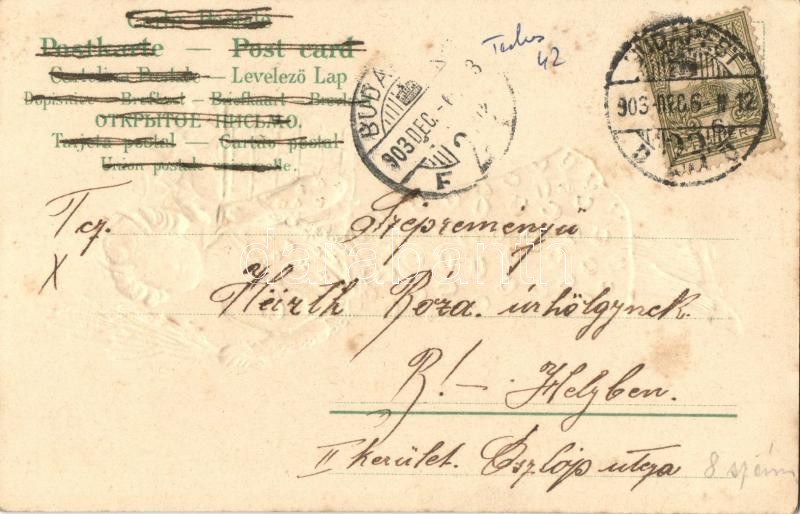 Carte Postale
Postkarte — Post card
Cartolina Postale — Levelező Lap
Dopisnice — Brefkort — Briefkaart —
ОТКРЫТОЕ ПИСЬМО.
Tarjeta postal — Cartão postal
Union postale universelle.
BUDA
903 DEC. 6
F
BUDAPEST
903 DEC. 6
42
Tcz.
Szépreményü
X
Róza úrhölgynek
R! – Helyben.
II kerület. Oszlop utcza 8 szám
darabanth